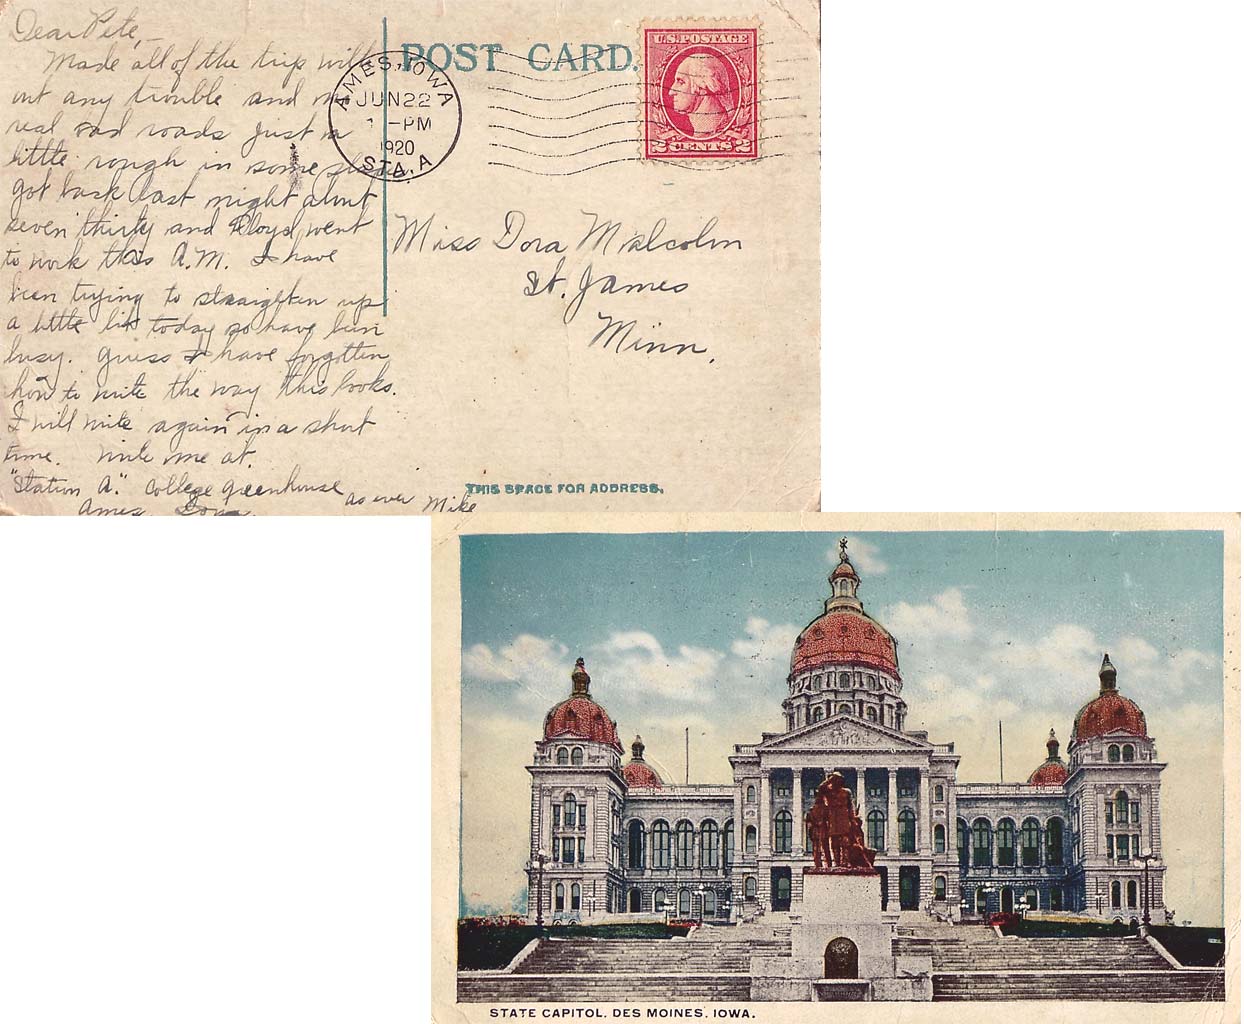 Dear Pete,—
Made all of the trip with
out any trouble and no
real bad roads just a
little rough in some places.
got back last night about
seven thirty and Floyd went
to work this A.M. I have
been trying to straighten up
a little bit today so have been
busy. guess I have forgotten
how to write the way this looks.
I will write again in a short
time. write me at.
"Station A." College greenhouse
Ames, Iowa.
as ever Mike
POST CARD.
AMES, IOWA
JUN 22
1 - PM
1920
STA. A
U.S. POSTAGE
2 CENTS 2
Miss Dora Malcolm
St. James
Minn.
THIS SPACE FOR ADDRESS.
STATE CAPITOL. DES MOINES. IOWA.